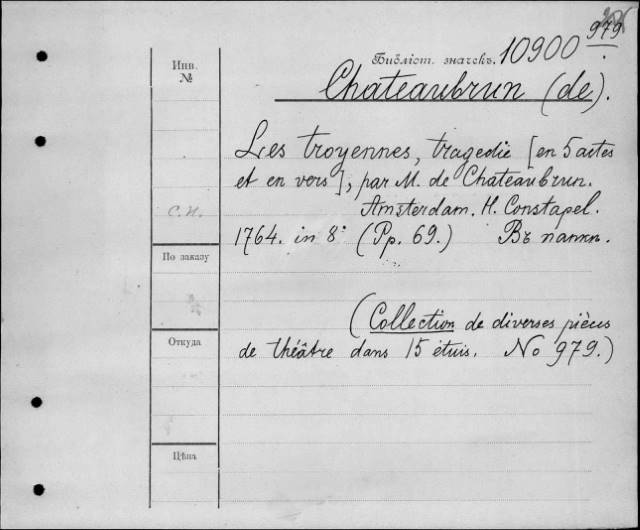 979
Инв.
№
Библіот. значекъ. 10900
Chateaubrun (de).
Les troyennes, tragedie [en 5 actes
et en vers], par M. de Chateaubrun.
Amsterdam. H. Constapel.
С.И.
1764. in 8° (Pp. 69.) Въ папкѣ.
По заказу
(Collection de diverses pièces
Откуда
de théâtre dans 15 étuis. No 979.)
Цѣна